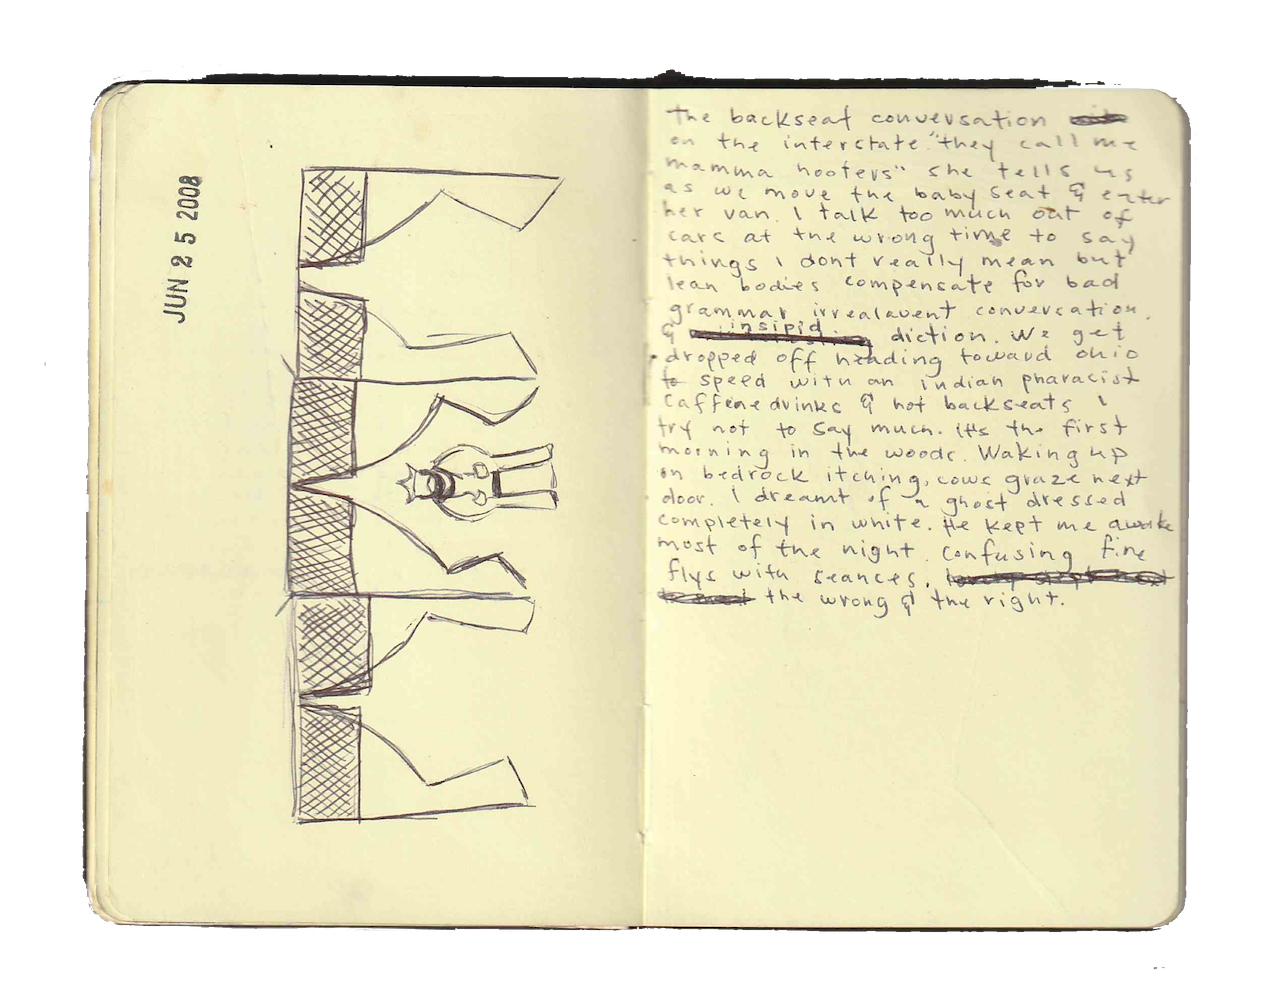 JUN 25 2008
the backseat conversation
on the interstate. "they call me
mamma hooters" she tells us
as we move the baby seat & enter
her van. I talk too much out of
cars at the wrong time to say
things i dont really mean but
lean bodies compensate for bad
grammar irrealavent conversation.
& insipid diction. We get
dropped off heading toward ohio
to speed with an indian pharacist
Caffeine drinks & hot backseats i
try not to say much. it's the first
morning in the woods. Waking up
on bedrock itching, cows graze next
door. i dreamt of a ghost dressed
completely in white. He kept me awake
most of the night. Confusing fire
flys with seances.
the wrong & the right.